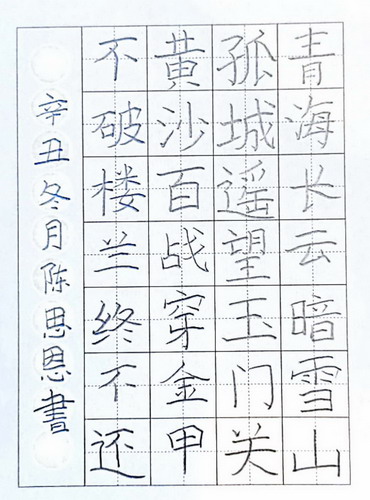 青海长云暗雪山
孤城遥望玉门关
黄沙百战穿金甲
不破楼兰终不还
辛丑冬月陈思恩書